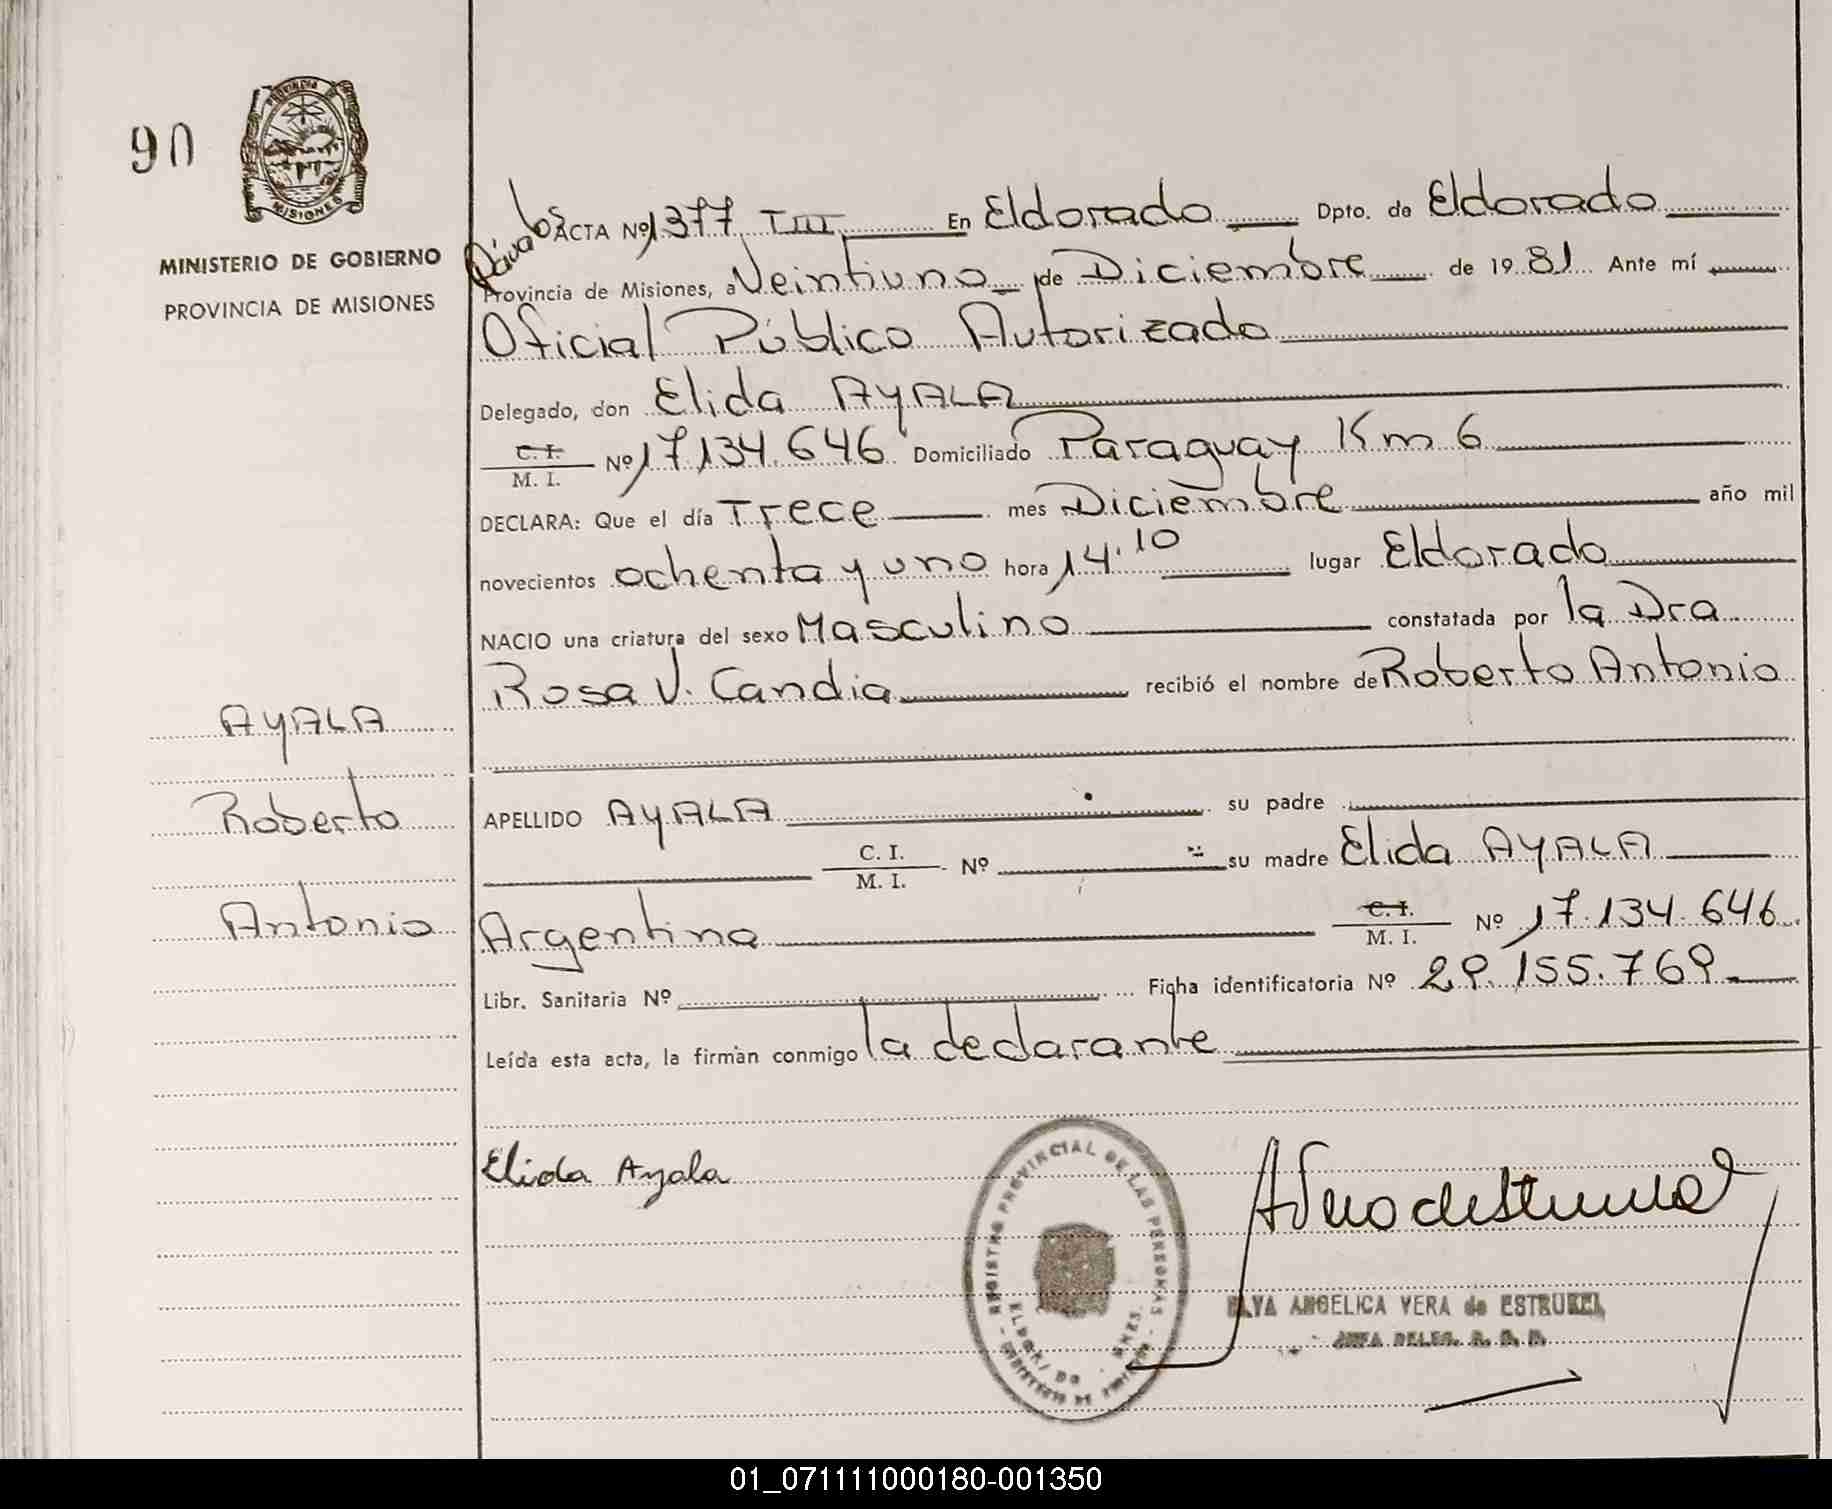 90
PROVINCIA DE
MISIONES
MINISTERIO DE GOBIERNO
PROVINCIA DE MISIONES
ACTA Nº 1377 TIII En Eldorado Dpto. de Eldorado
Provincia de Misiones, a Veintiuno de Diciembre de 1981 Ante mí
Oficial Público Autorizado
Delegado, don Elida AYALA
C. I. / M. I. Nº 17.134.646 Domiciliado Paraguay Km 6
DECLARA: Que el día Trece mes Diciembre año mil
novecientos ochenta y uno hora 14.10 lugar Eldorado
NACIO una criatura del sexo Masculino constatada por la Dra
Rosa V. Candia recibió el nombre de Roberto Antonio
AYALA
Roberto
Antonio
APELLIDO AYALA su padre
C. I. / M. I. Nº su madre Elida AYALA
Argentina C. I. / M. I. Nº 17.134.646
Libr. Sanitaria Nº Ficha identificatoria Nº 29.155.769
Leída esta acta, la firman conmigo la declarante
Elida Ayala
REGISTRO PROVINCIAL DE LAS PERSONAS
ELDORADO
ELVA ANGELICA VERA de ESTRUBEL
JEFA DELEG.
01_071111000180-001350